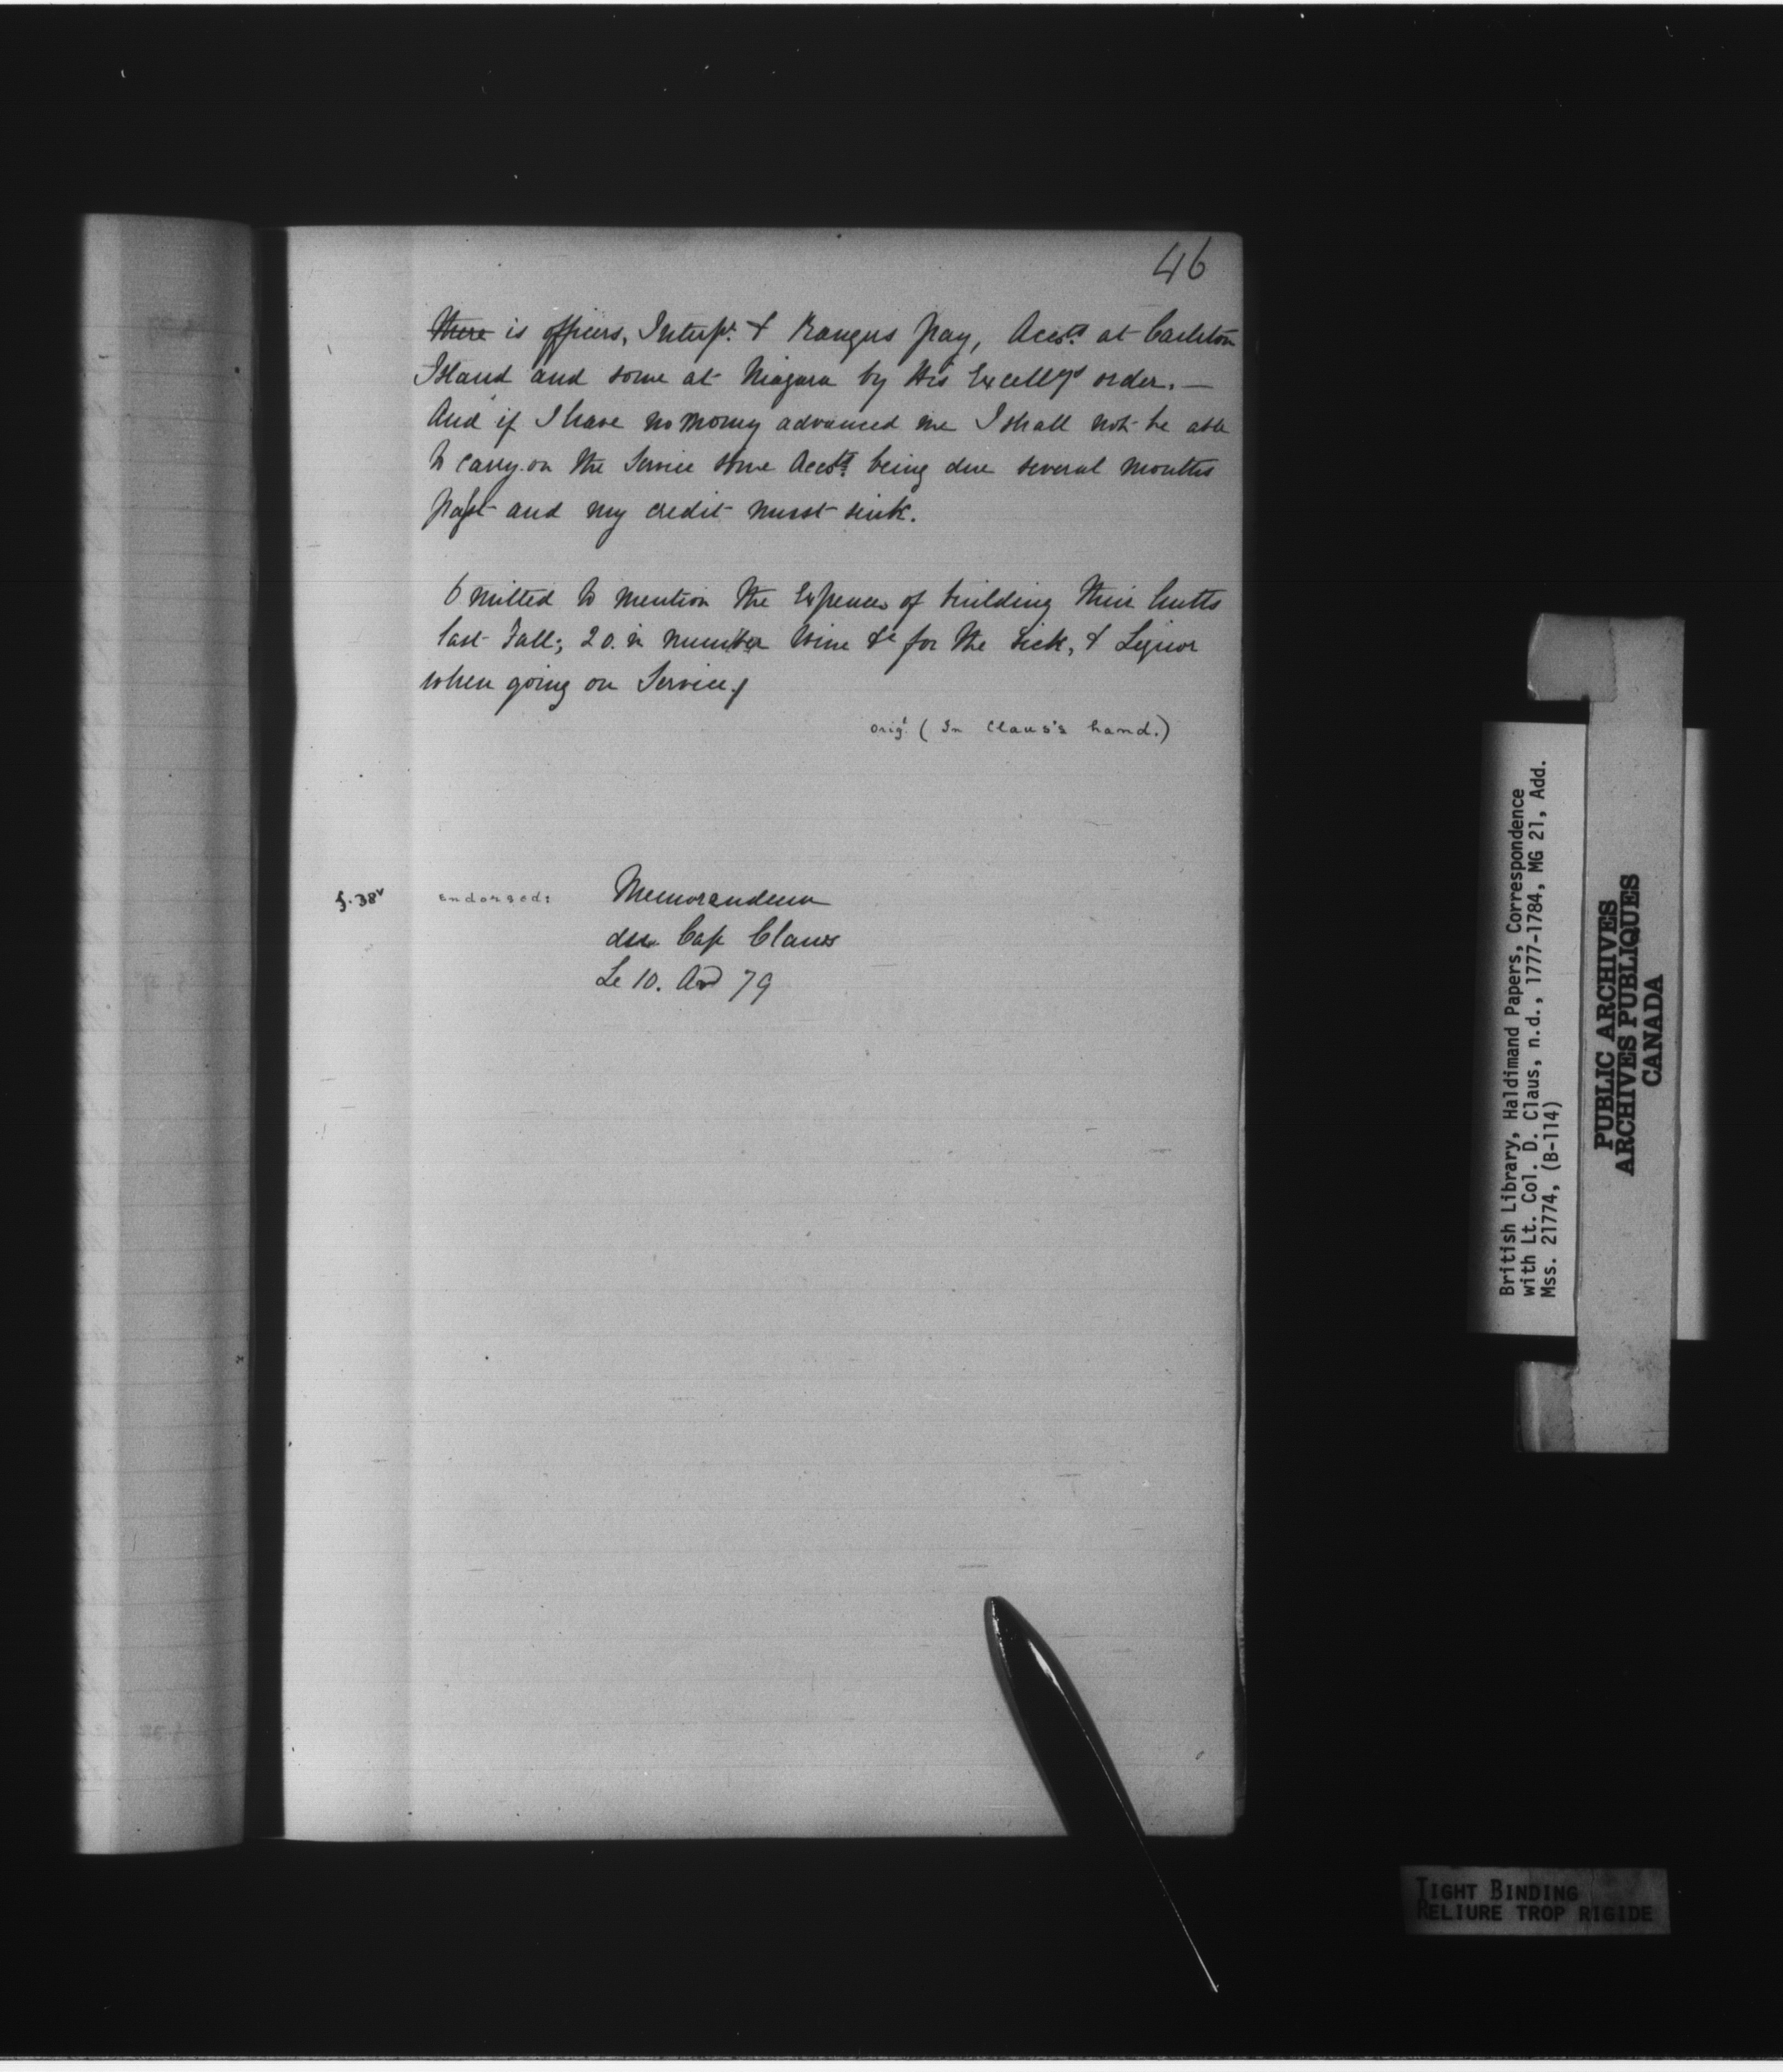 46
there is officers, Interpt. & Rangers pay, Accots. at Carleton
Island and some at Niagara by His Excellys order. —
And if I have no money advanced me I shall not be able
to carry on the Service some Accots. being due several months
past and my credit must sink.
Omitted to mention the Expences of building their hutts
last Fall; 20. in number Wine &c for the sick, & Liquor
when going on Service.
orig.l (In Claus's hand.)
f.38v endorsed: Memorandum
du Cap Claus
Le 10. Avl 79
British Library, Haldimand Papers, Correspondence
with Lt. Col. D. Claus, n.d., 1777-1784, MG 21, Add.
Mss. 21774, (B-114)
PUBLIC ARCHIVES
ARCHIVES PUBLIQUES
CANADA
TIGHT BINDING
RELIURE TROP RIGIDE